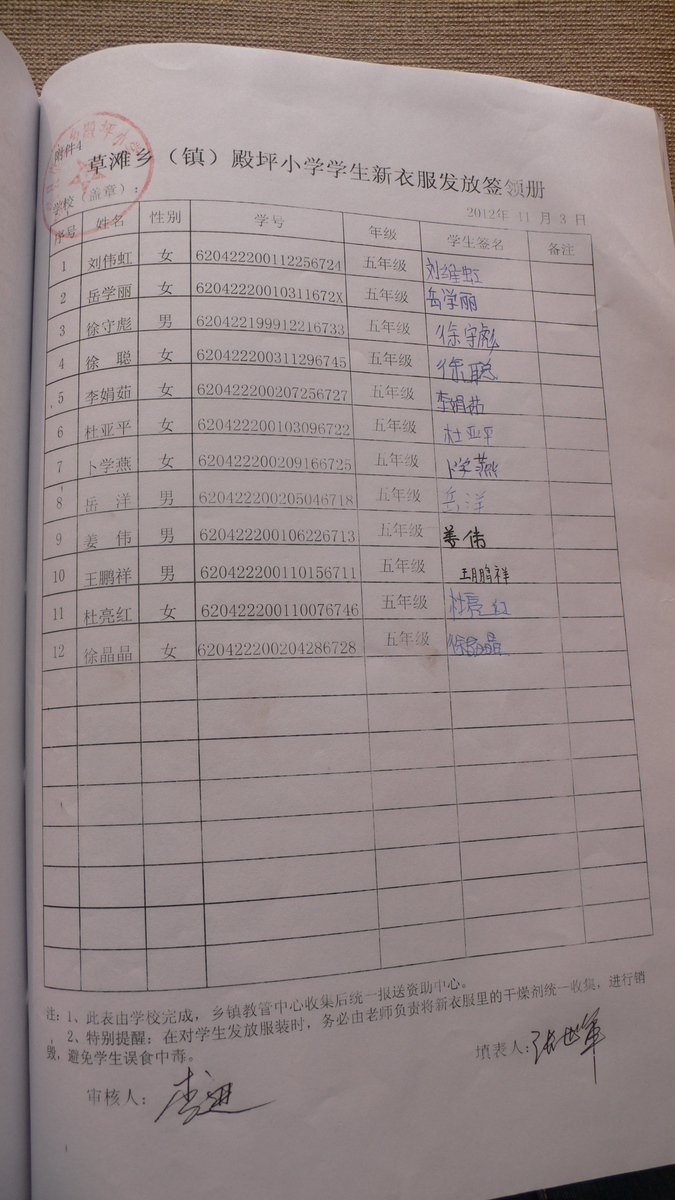 附件4
草滩乡（镇）殿坪小学学生新衣服发放签领册
学校（盖章）： 2012年 11 月 3 日
序号 姓名 性别 学号 年级 学生签名 备注
1 刘伟虹 女 620422200112256724 五年级 刘维虹
2 岳学丽 女 62042220010311672X 五年级 岳学丽
3 徐守彪 男 620422199912216733 五年级 徐守彪
4 徐 聪 女 620422200311296745 五年级 徐聪
5 李娟茹 女 620422200207256727 五年级 李娟茹
6 杜亚平 女 620422200103096722 五年级 杜亚平
7 卜学燕 女 620422200209166725 五年级 卜学燕
8 岳 洋 男 620422200205046718 五年级 岳洋
9 姜 伟 男 620422200106226713 五年级 姜伟
10 王鹏祥 男 620422200110156711 五年级 王鹏祥
11 杜亮红 女 620422200110076746 五年级 杜亮红
12 徐晶晶 女 620422200204286728 五年级 徐晶晶
注：1、此表由学校完成，乡镇教管中心收集后统一报送资助中心。
2、特别提醒：在对学生发放服装时，务必由老师负责将新衣服里的干燥剂统一收集，进行销
毁，避免学生误食中毒。
填表人：张世军
审核人：李进